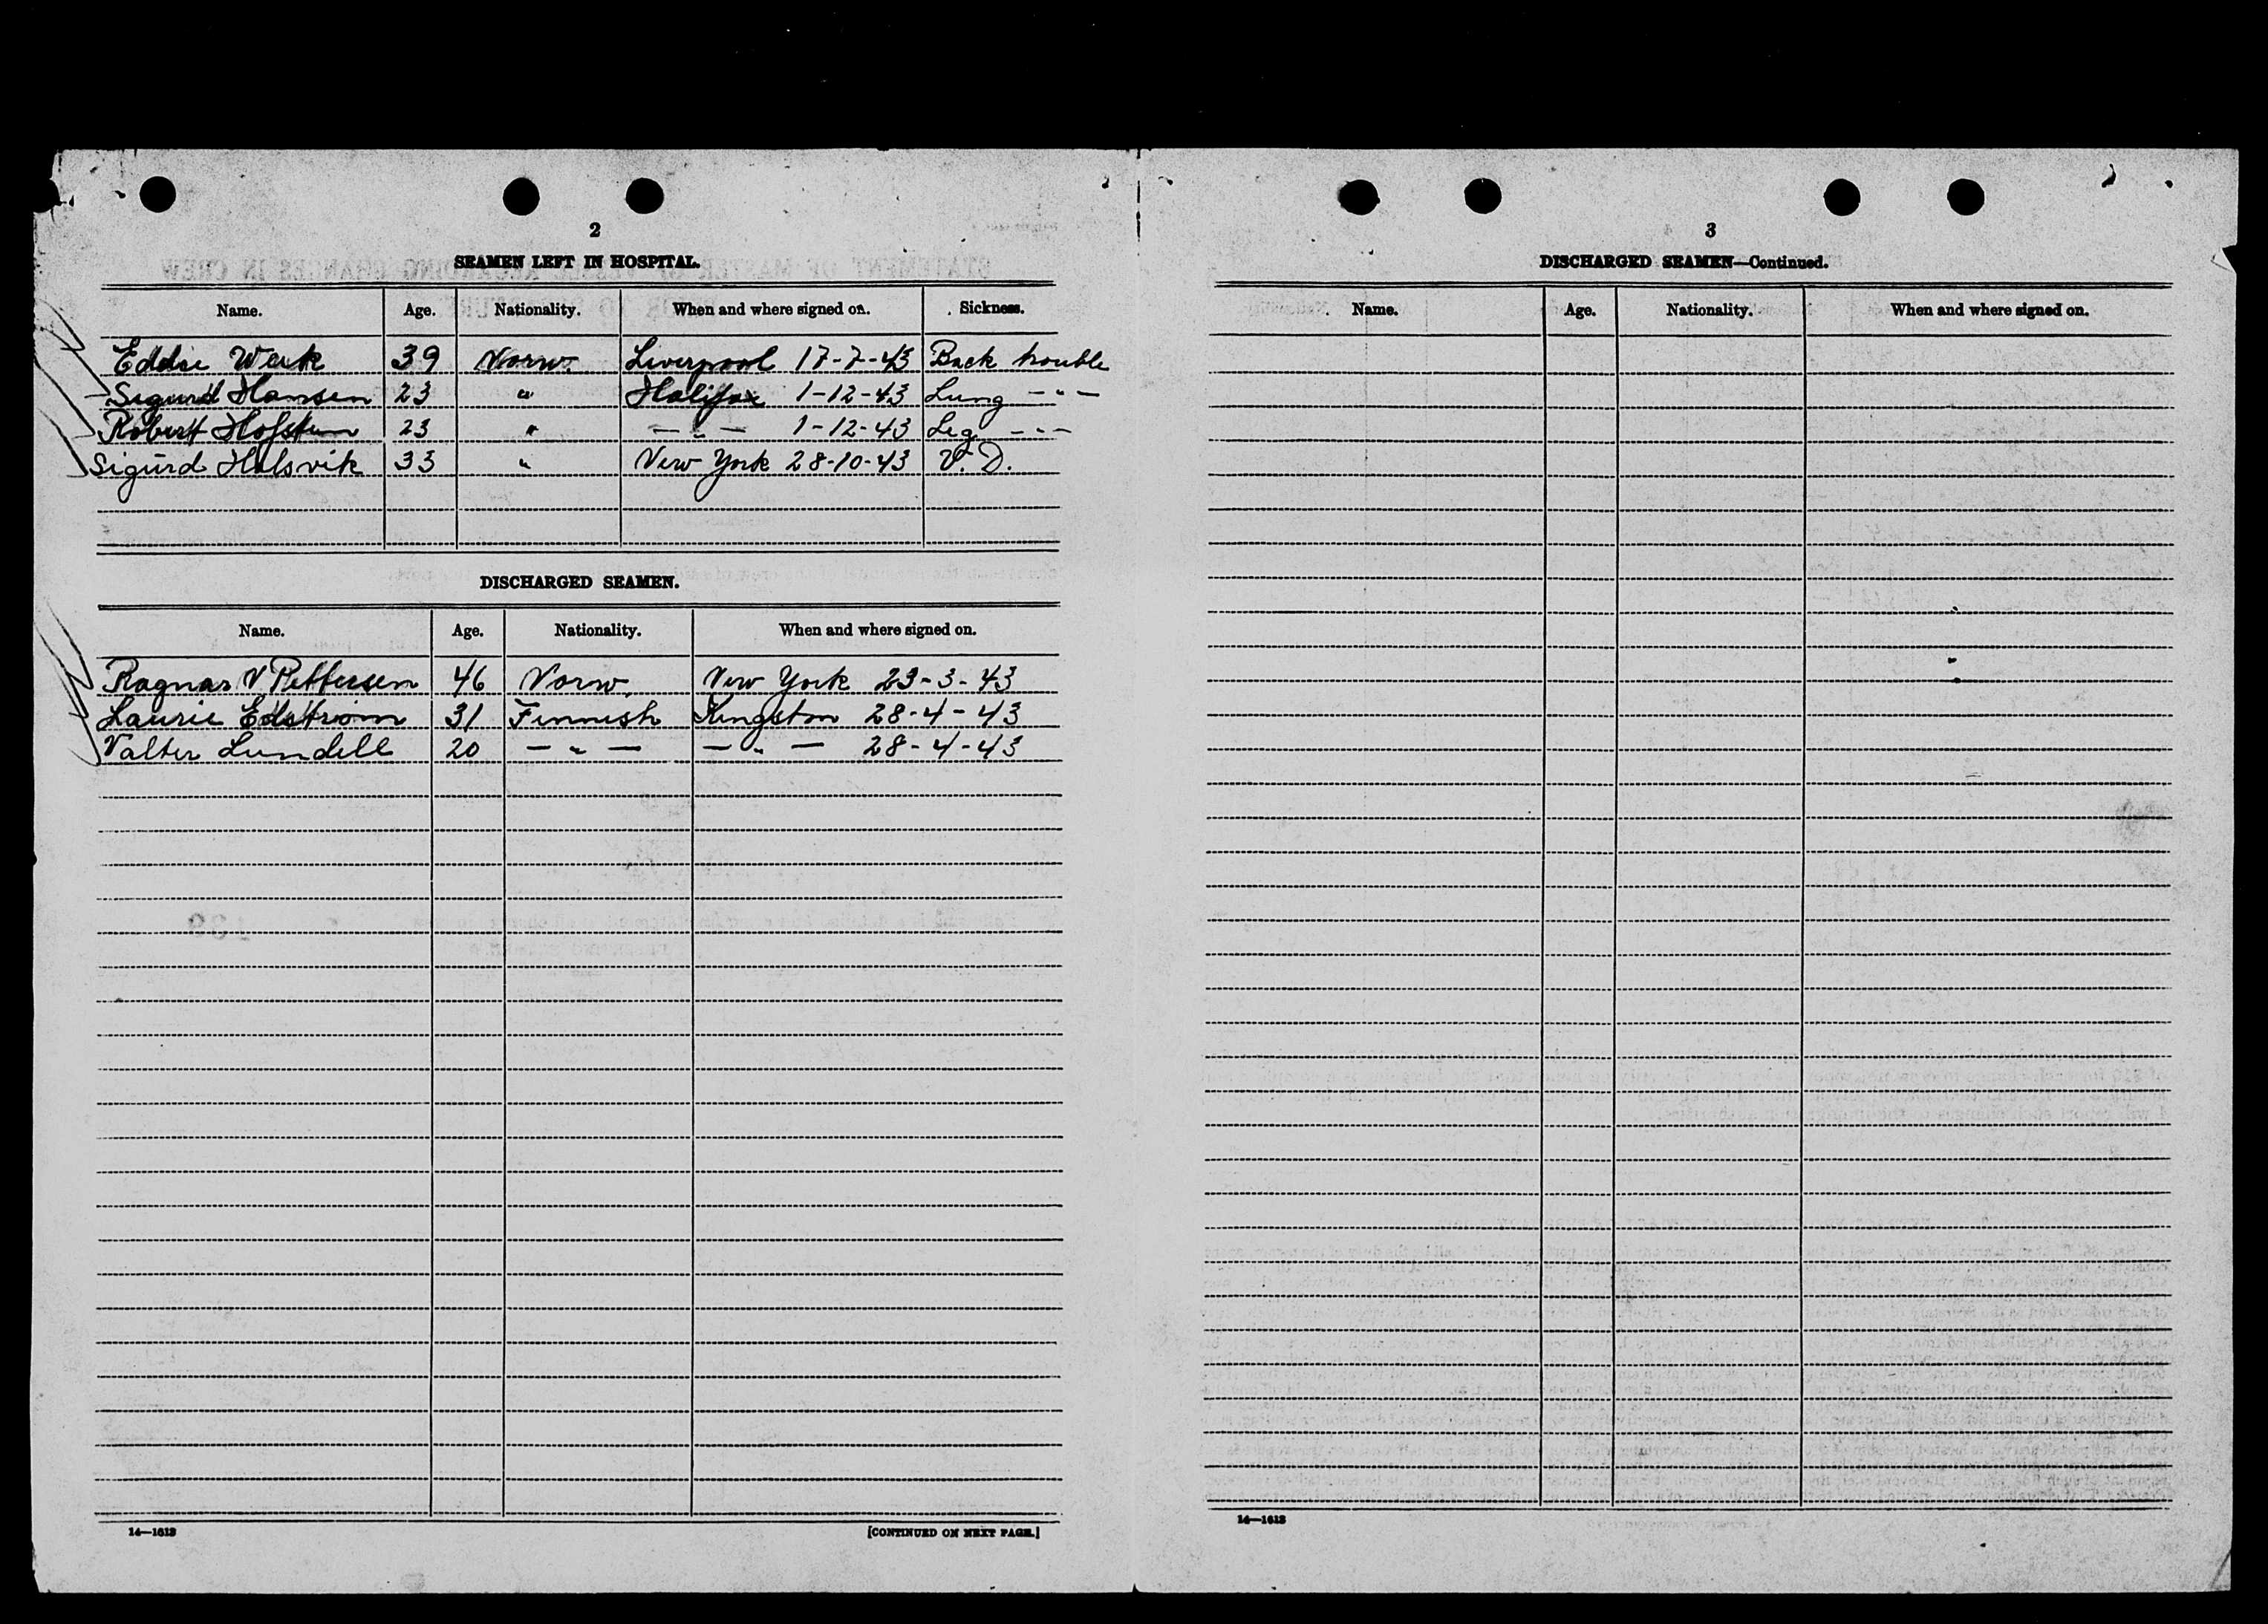 2
SEAMEN LEFT IN HOSPITAL.
Name. Age. Nationality. When and where signed on. Sickness.
Eddie Werk 39 Norw. Liverpool 17-7-43 Back trouble
Sigurd Hansen 23 " Halifax 1-12-43 Lung -"-
Robert 23 " -"- 1-12-43 Leg -"-
Sigurd Halsvik 33 " New York 28-10-43 V. D.
DISCHARGED SEAMEN.
Name. Age. Nationality. When and where signed on.
Ragnar V Pettersen 46 Norw. New York 23-3-43
Laurie Edström 31 Finnish Kingston 28-4-43
Valter Lundell 20 -"- -"- 28-4-43
14—1613
[CONTINUED ON NEXT PAGE.]
3
DISCHARGED SEAMEN—Continued.
Name. Age. Nationality. When and where signed on.
14—1613